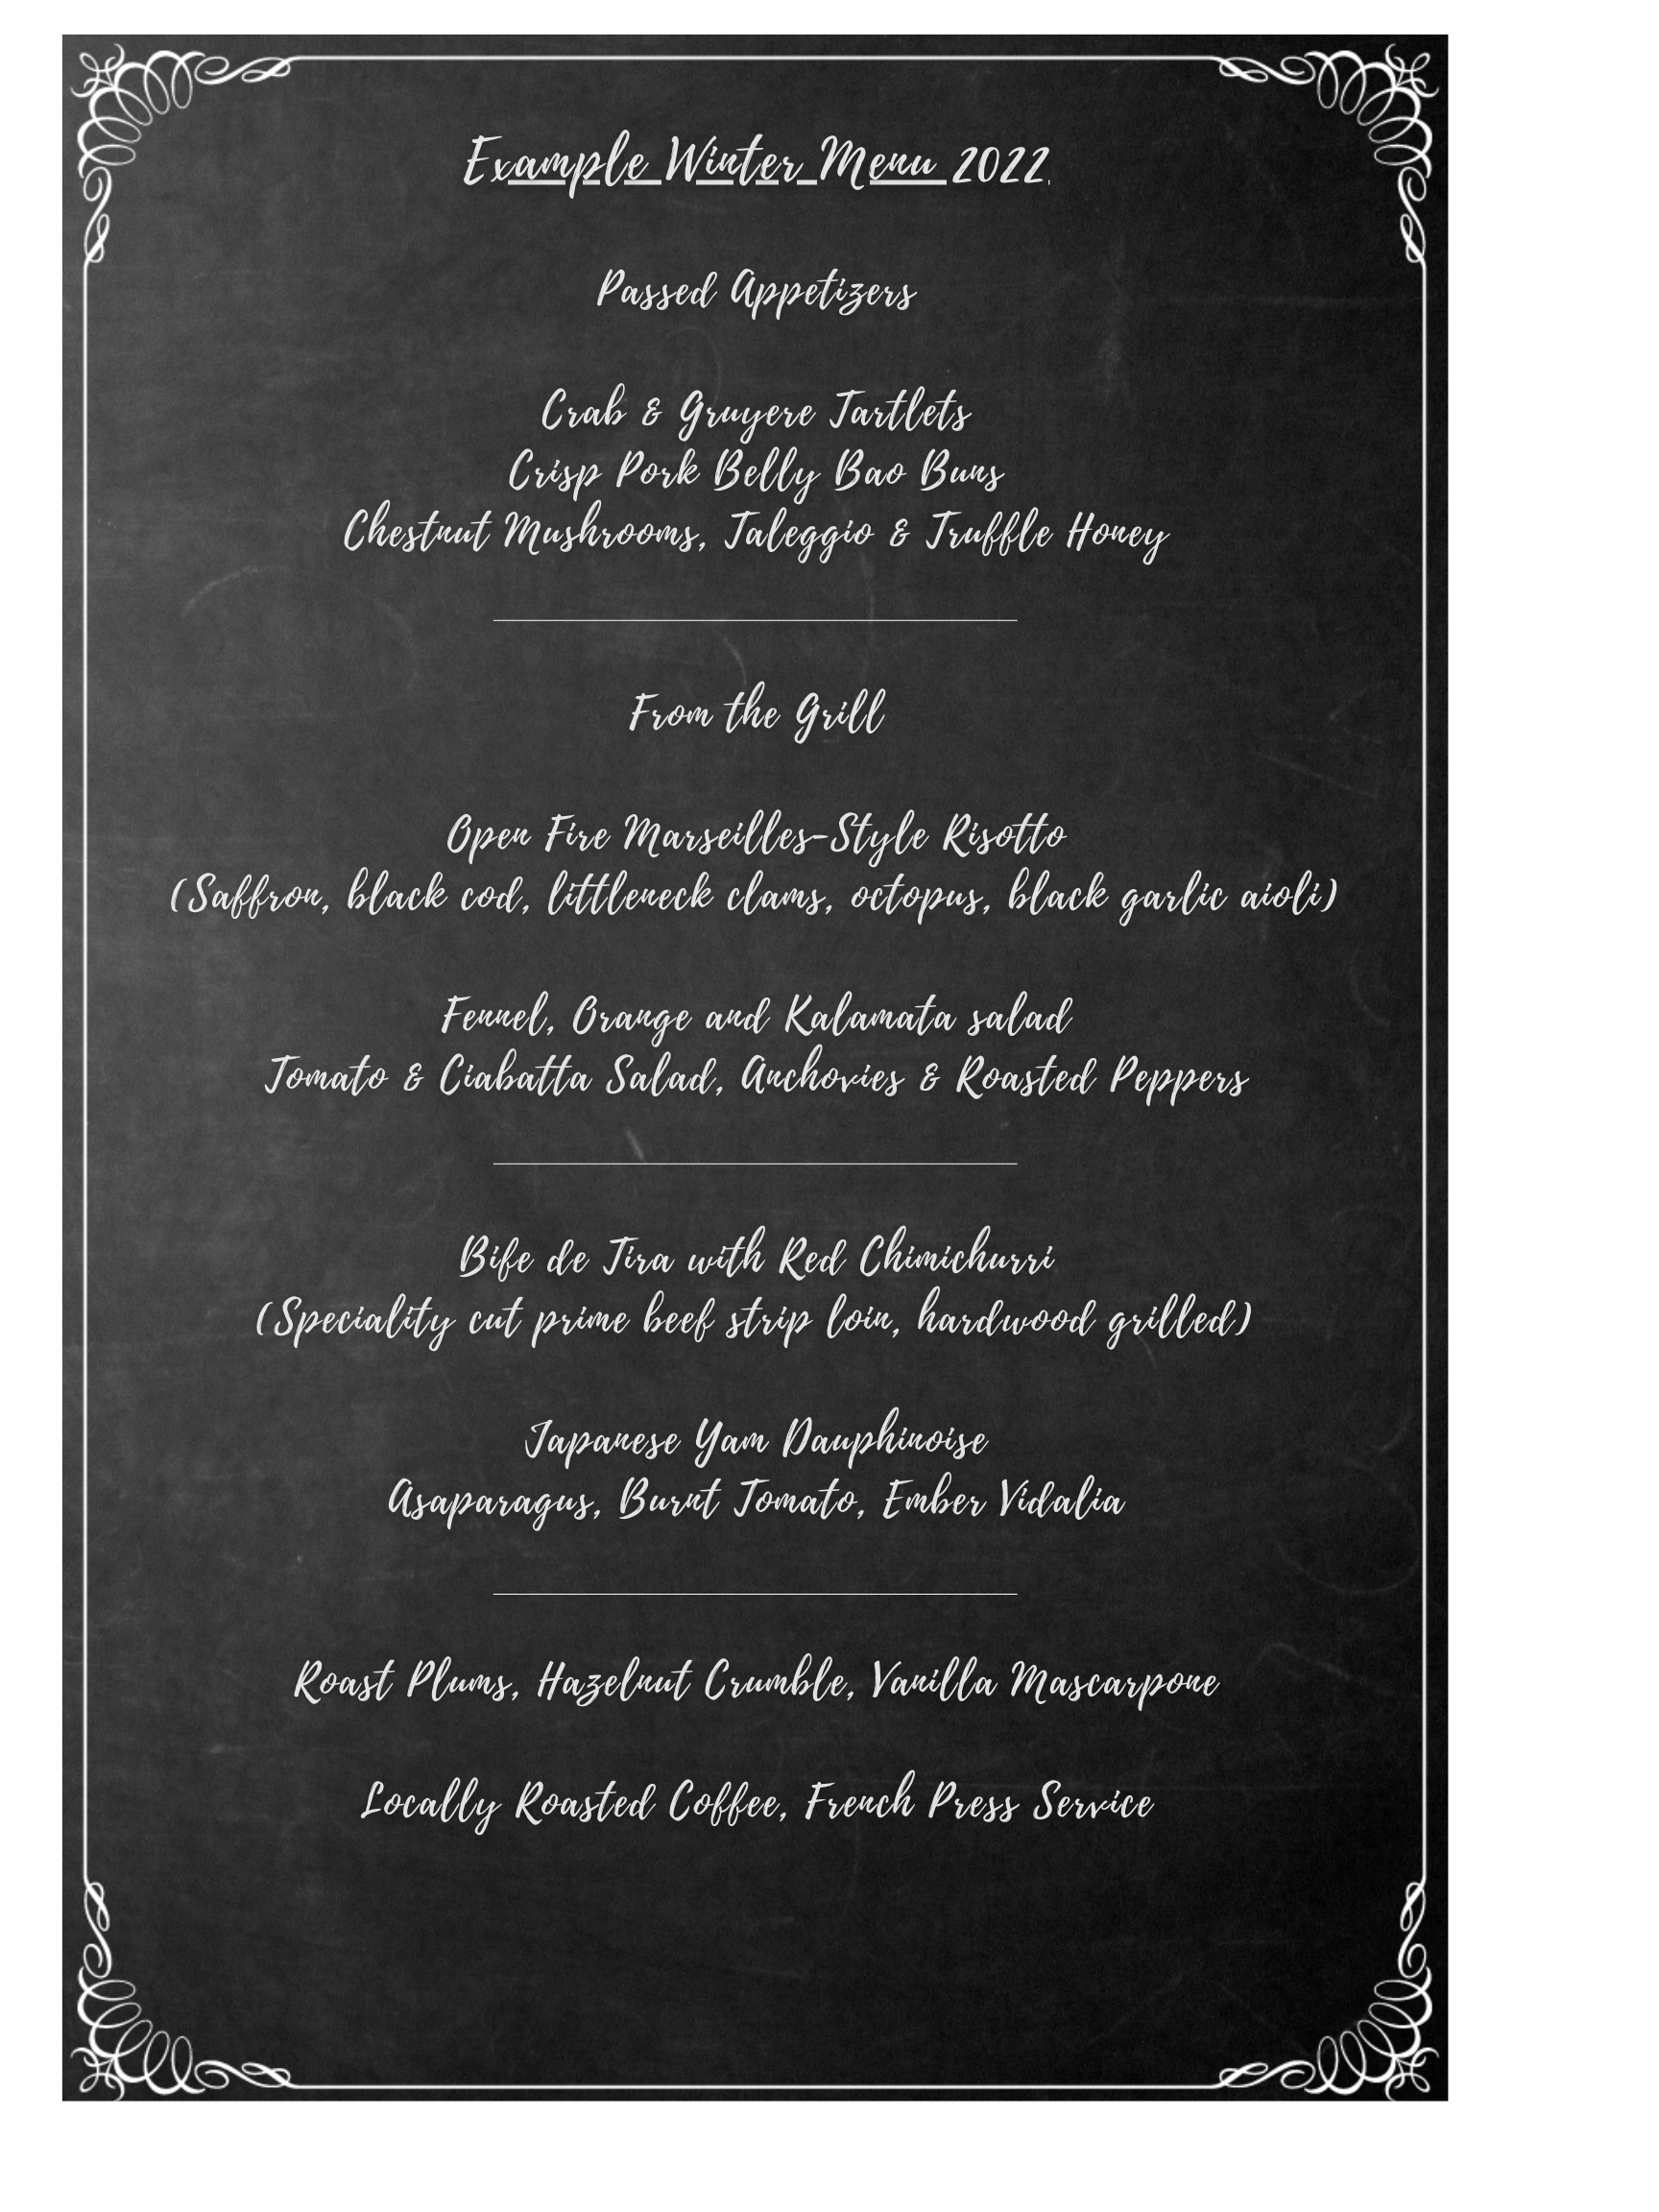 Example Winter Menu 2022
Passed Appetizers
Crab & Gruyere Tartlets
Crisp Pork Belly Bao Buns
Chestnut Mushrooms, Taleggio & Truffle Honey
From the Grill
Open Fire Marseilles-Style Risotto
(Saffron, black cod, littleneck clams, octopus, black garlic aioli)
Fennel, Orange and Kalamata salad
Tomato & Ciabatta Salad, Anchovies & Roasted Peppers
Bife de Tira with Red Chimichurri
(Speciality cut prime beef strip loin, hardwood grilled)
Japanese Yam Dauphinoise
Asaparagus, Burnt Tomato, Ember Vidalia
Roast Plums, Hazelnut Crumble, Vanilla Mascarpone
Locally Roasted Coffee, French Press Service